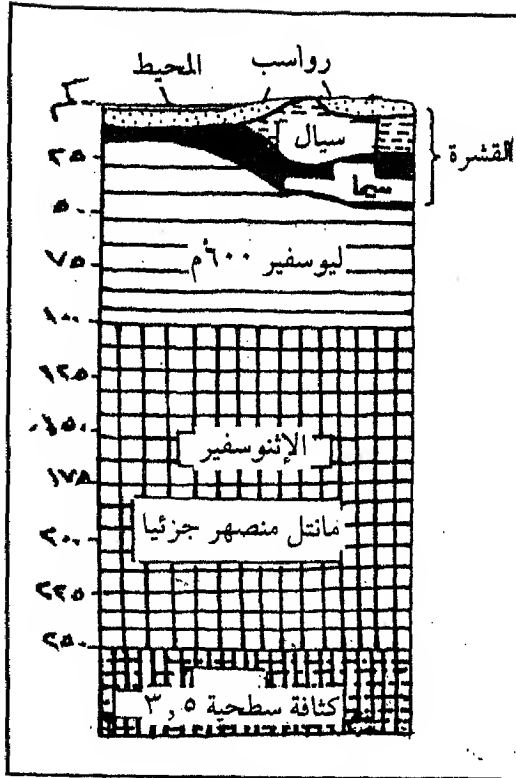 رواسب
المحيط
كم
سيال
القشرة
٢٥
سيما
٥٠
ليوسفير ٦٠٠م
٧٥
١٠٠
١٢٥
١٥٠
الإثنوسفير
١٧٥
مانتل منصهر جزئيا
٢٠٠
٢٢٥
٢٥٠
كثافة سطحية ٣,٥